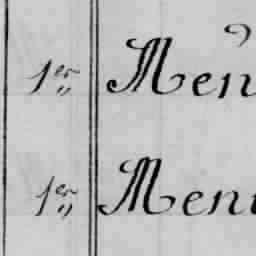 1er Men
1er Men